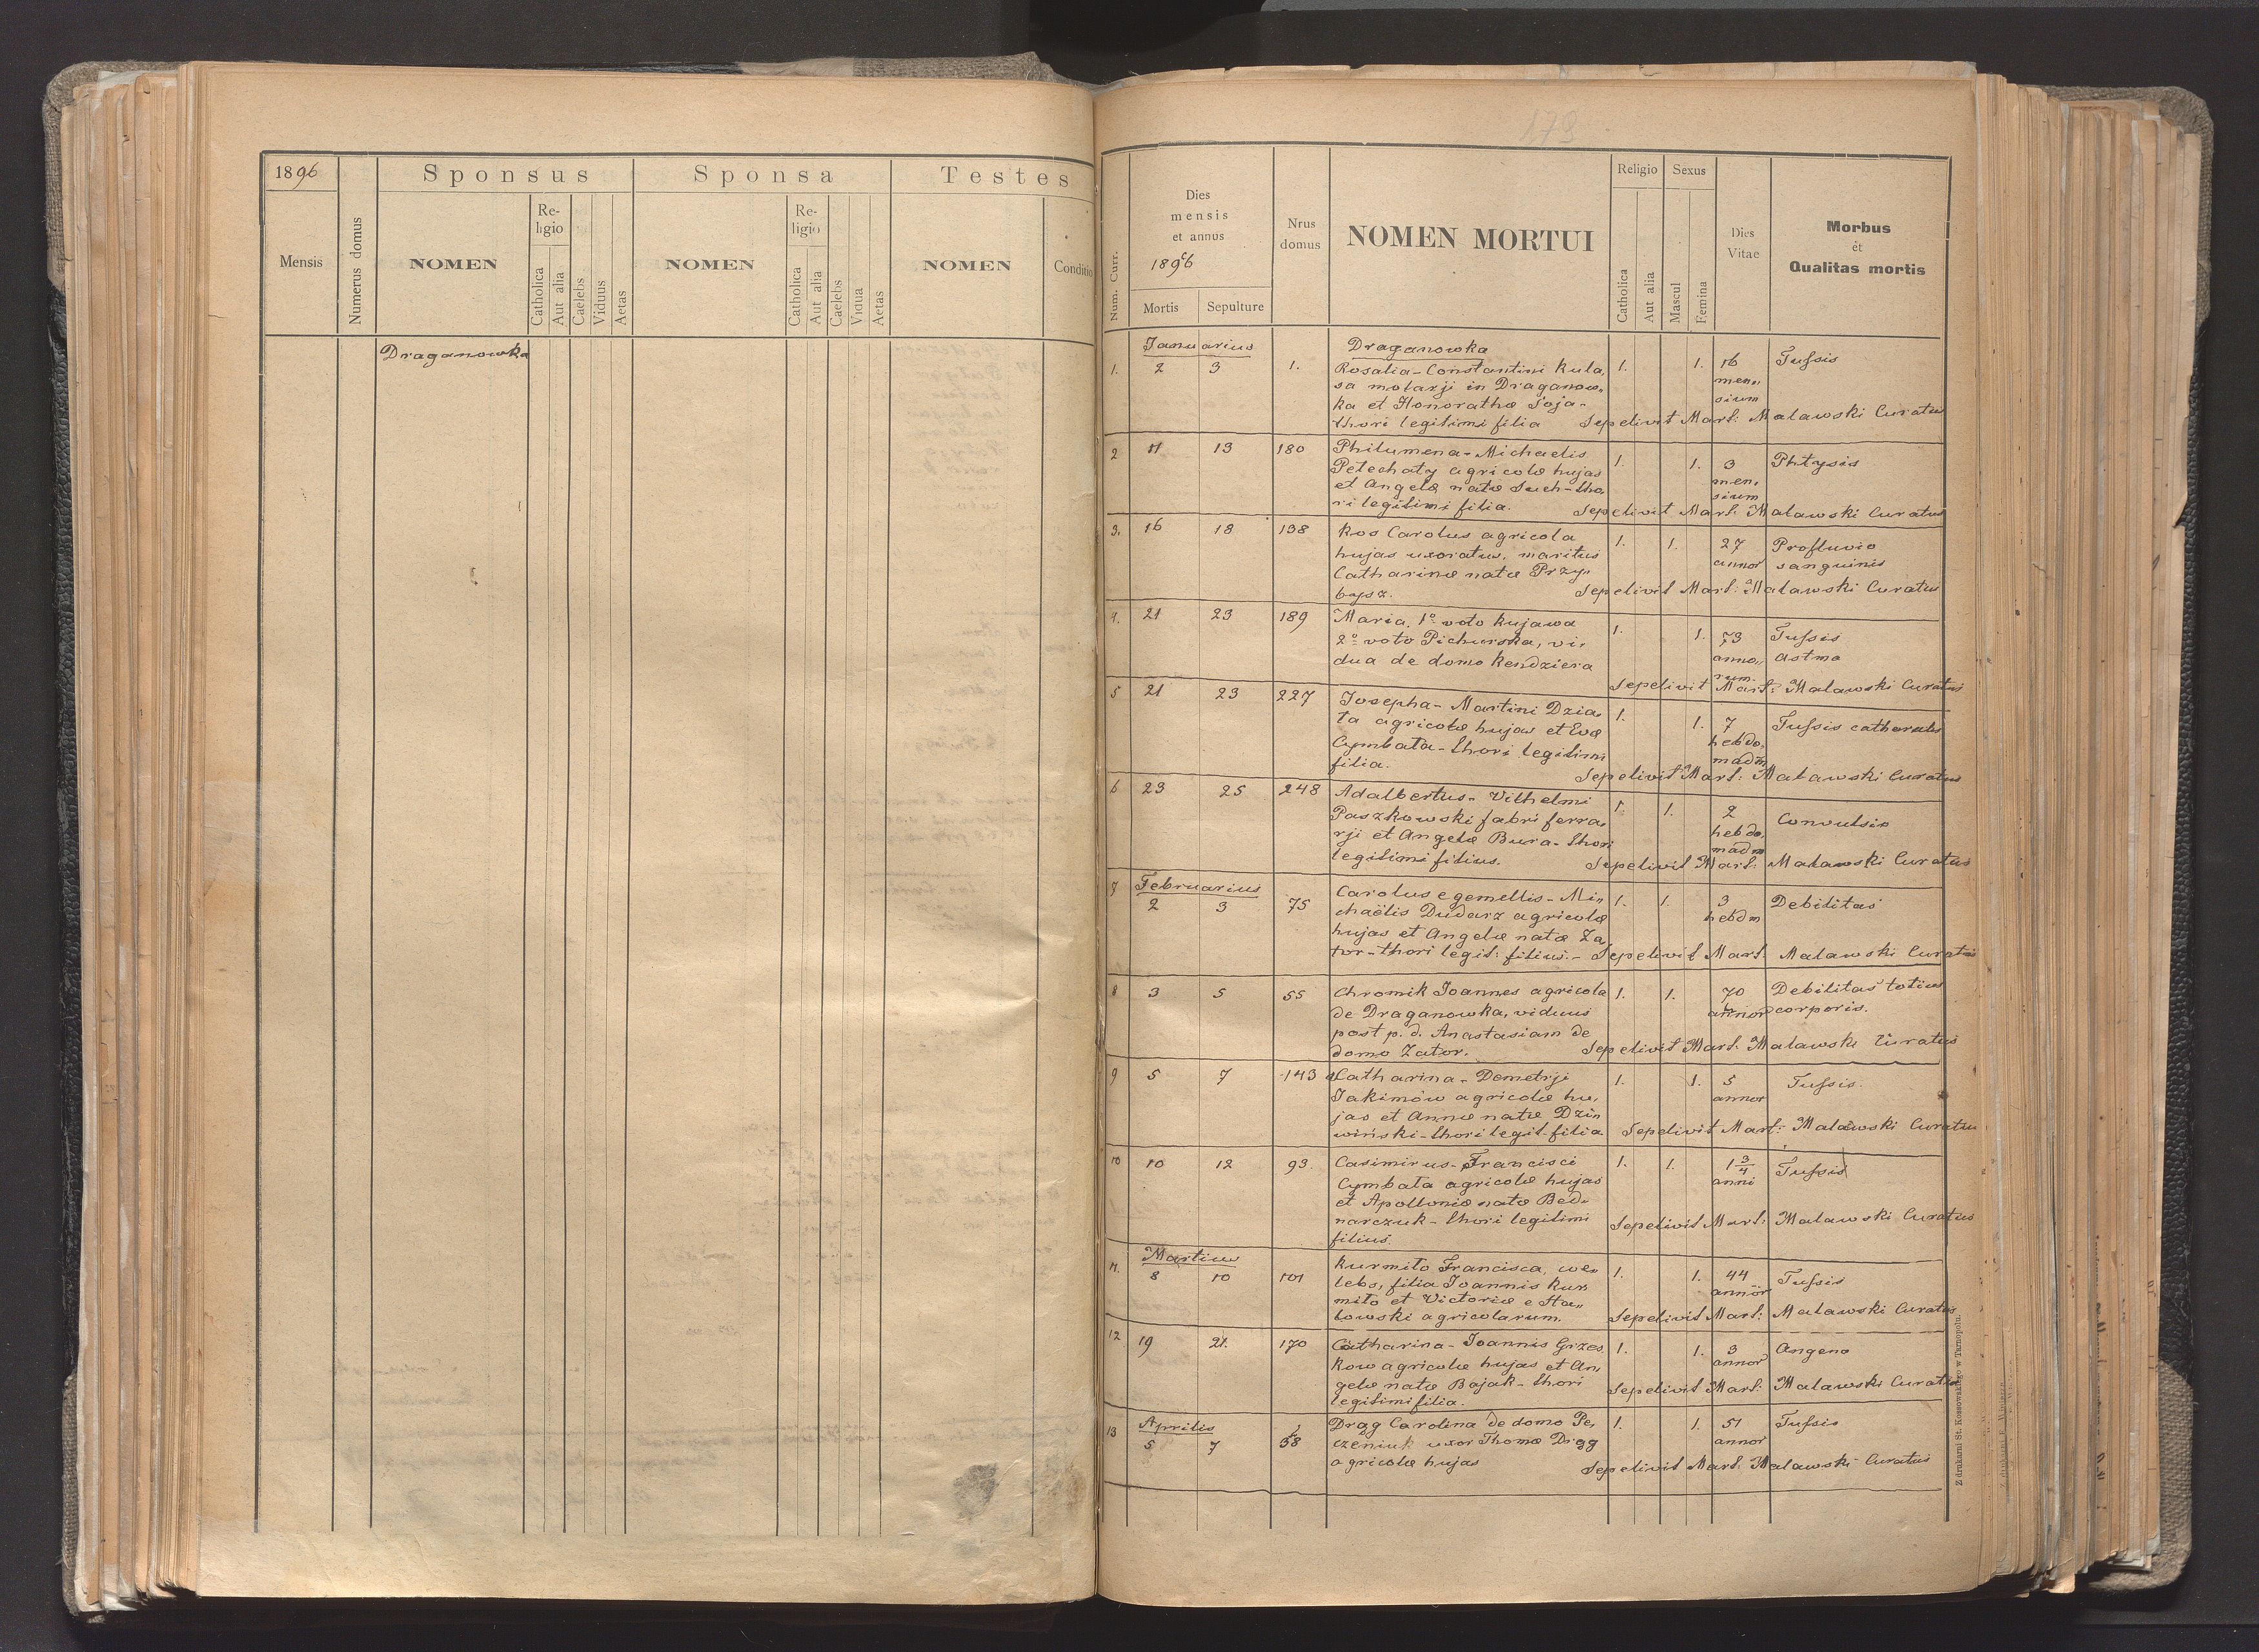 1896
Sponsus
Sponsa
Testes
Mensis
Numerus domus
NOMEN
Religio
Catholica
Aut alia
Caelebs
Viduus
Aetas
NOMEN
Religio
Catholica
Aut alia
Caelebs
Vidua
Aetas
NOMEN
Conditio
Draganowka
179
Num. Curr.
Dies
mensis
et annus
1896
Mortis
Sepulture
Nrus
domus
NOMEN MORTUI
Religio
Catholica
Aut alia
Sexus
Mascul
Femina
Dies
Vitae
Morbus
et
Qualitas mortis
Januarius
Draganowka
1. 2 3 1. Rosalia - Constantini Kula, 1. 1. 16 Tussis
sa molarji in Draganow, mens,
ka et Honorathæ Soja - sium
thori legitimi filia Sepelivit Mart: Malawski Curatus
2 11 13 180 Philumena - Michaelis 1. 1. 3 Phtysis
Petechaty agricolæ hujas men,
et Angelæ natæ Such - tho, sium
ri legitimi filia. Sepelivit Mart: Malawski Curatus
3. 16 18 138 Kos Carolus agricola 1. 1. 27 Profluvio
hujas uxoratus, maritus annor sanguinis
Catharinæ natæ Przy,
bysz. Sepelivit Mart: Malawski Curatus
4. 21 23 189 Maria, 1º voto Kujawa 1. 1. 73 Tussis
2º voto Pichurska, vi, anno, astma
dua de domo Kendziera rum.
Sepelivit Mart: Malawski Curatus
5 21 23 227 Josepha - Martini Dzia, 1. 1. 7 Tussis catharalis
ła agricolæ hujas et Evæ hebdo,
Cymbała - thori legitimi madm
filia. Sepelivit Mart: Malawski Curatus
6 23 25 248 Adalbertus - Vilhelmi 1. 1. 2 Convulsio
Paszkowski fabri ferra, hebdo,
rji et Angelæ Bura - thori madm
legitimi filius. Sepelivit Mart: Malawski Curatus
Februarius
7 2 3 75 Carolus e gemellis - Mi, 1. 1. 3 Debilitas
chaëlis Dudarz agricolæ hebdm
hujas et Angelæ natæ Za,
tor - thori legit: filius. - Sepelivit Mart. Malawski Curatus
8 3 5 55 Chromik Joannes agricola 1. 1. 70 Debilitas totius
de Draganowka, viduus annor corporis.
post p. d. Anastasiam de
domo Zator. Sepelivit Mart: Malawski Curatus
9 5 7 143 Catharina - Demetrji 1. 1. 5 Tussis.
Jakimów agricolæ hu, annor
jas et Annæ natæ Dzi,
wiński - thori legit. filia Sepelivit Mart: Malawski Curatus
10 10 12 93. Casimirus - Francisci 1. 1. 1 3/4 Tussis
Cymbała agricolæ hujas anni
et Apolloniæ natæ Bed,
narczuk - thori legitimi Sepelivit Mart: Malawski Curatus
filius.
Martius
11. 8 10 101 Kurmiło Francisca, cæ, 1. 1. 44 Tussis
lebs, filia Joannis Kur, annor
miło et Victoriæ e Ha,,
łowski agricolarum. Sepelivit Mart: Malawski Curatus
12 19 21. 170 Catharina - Joannis Grzes, 1. 1. 3 Angena
kow agricolæ hujas et An, annor
gelæ natæ Bajak - thori Sepelivit Mart: Malawski Curatus
legitimi filia.
Aprilis
13 5 7 58 Drąg Carolina de domo Pe, 1. 1. 51 Tussis
czeniuk uxor Thomæ Drąg annor
agricolæ hujas Sepelivit Mart: Malawski Curatus
Z drukarni St. Kossowskiego w Tarnopolu.